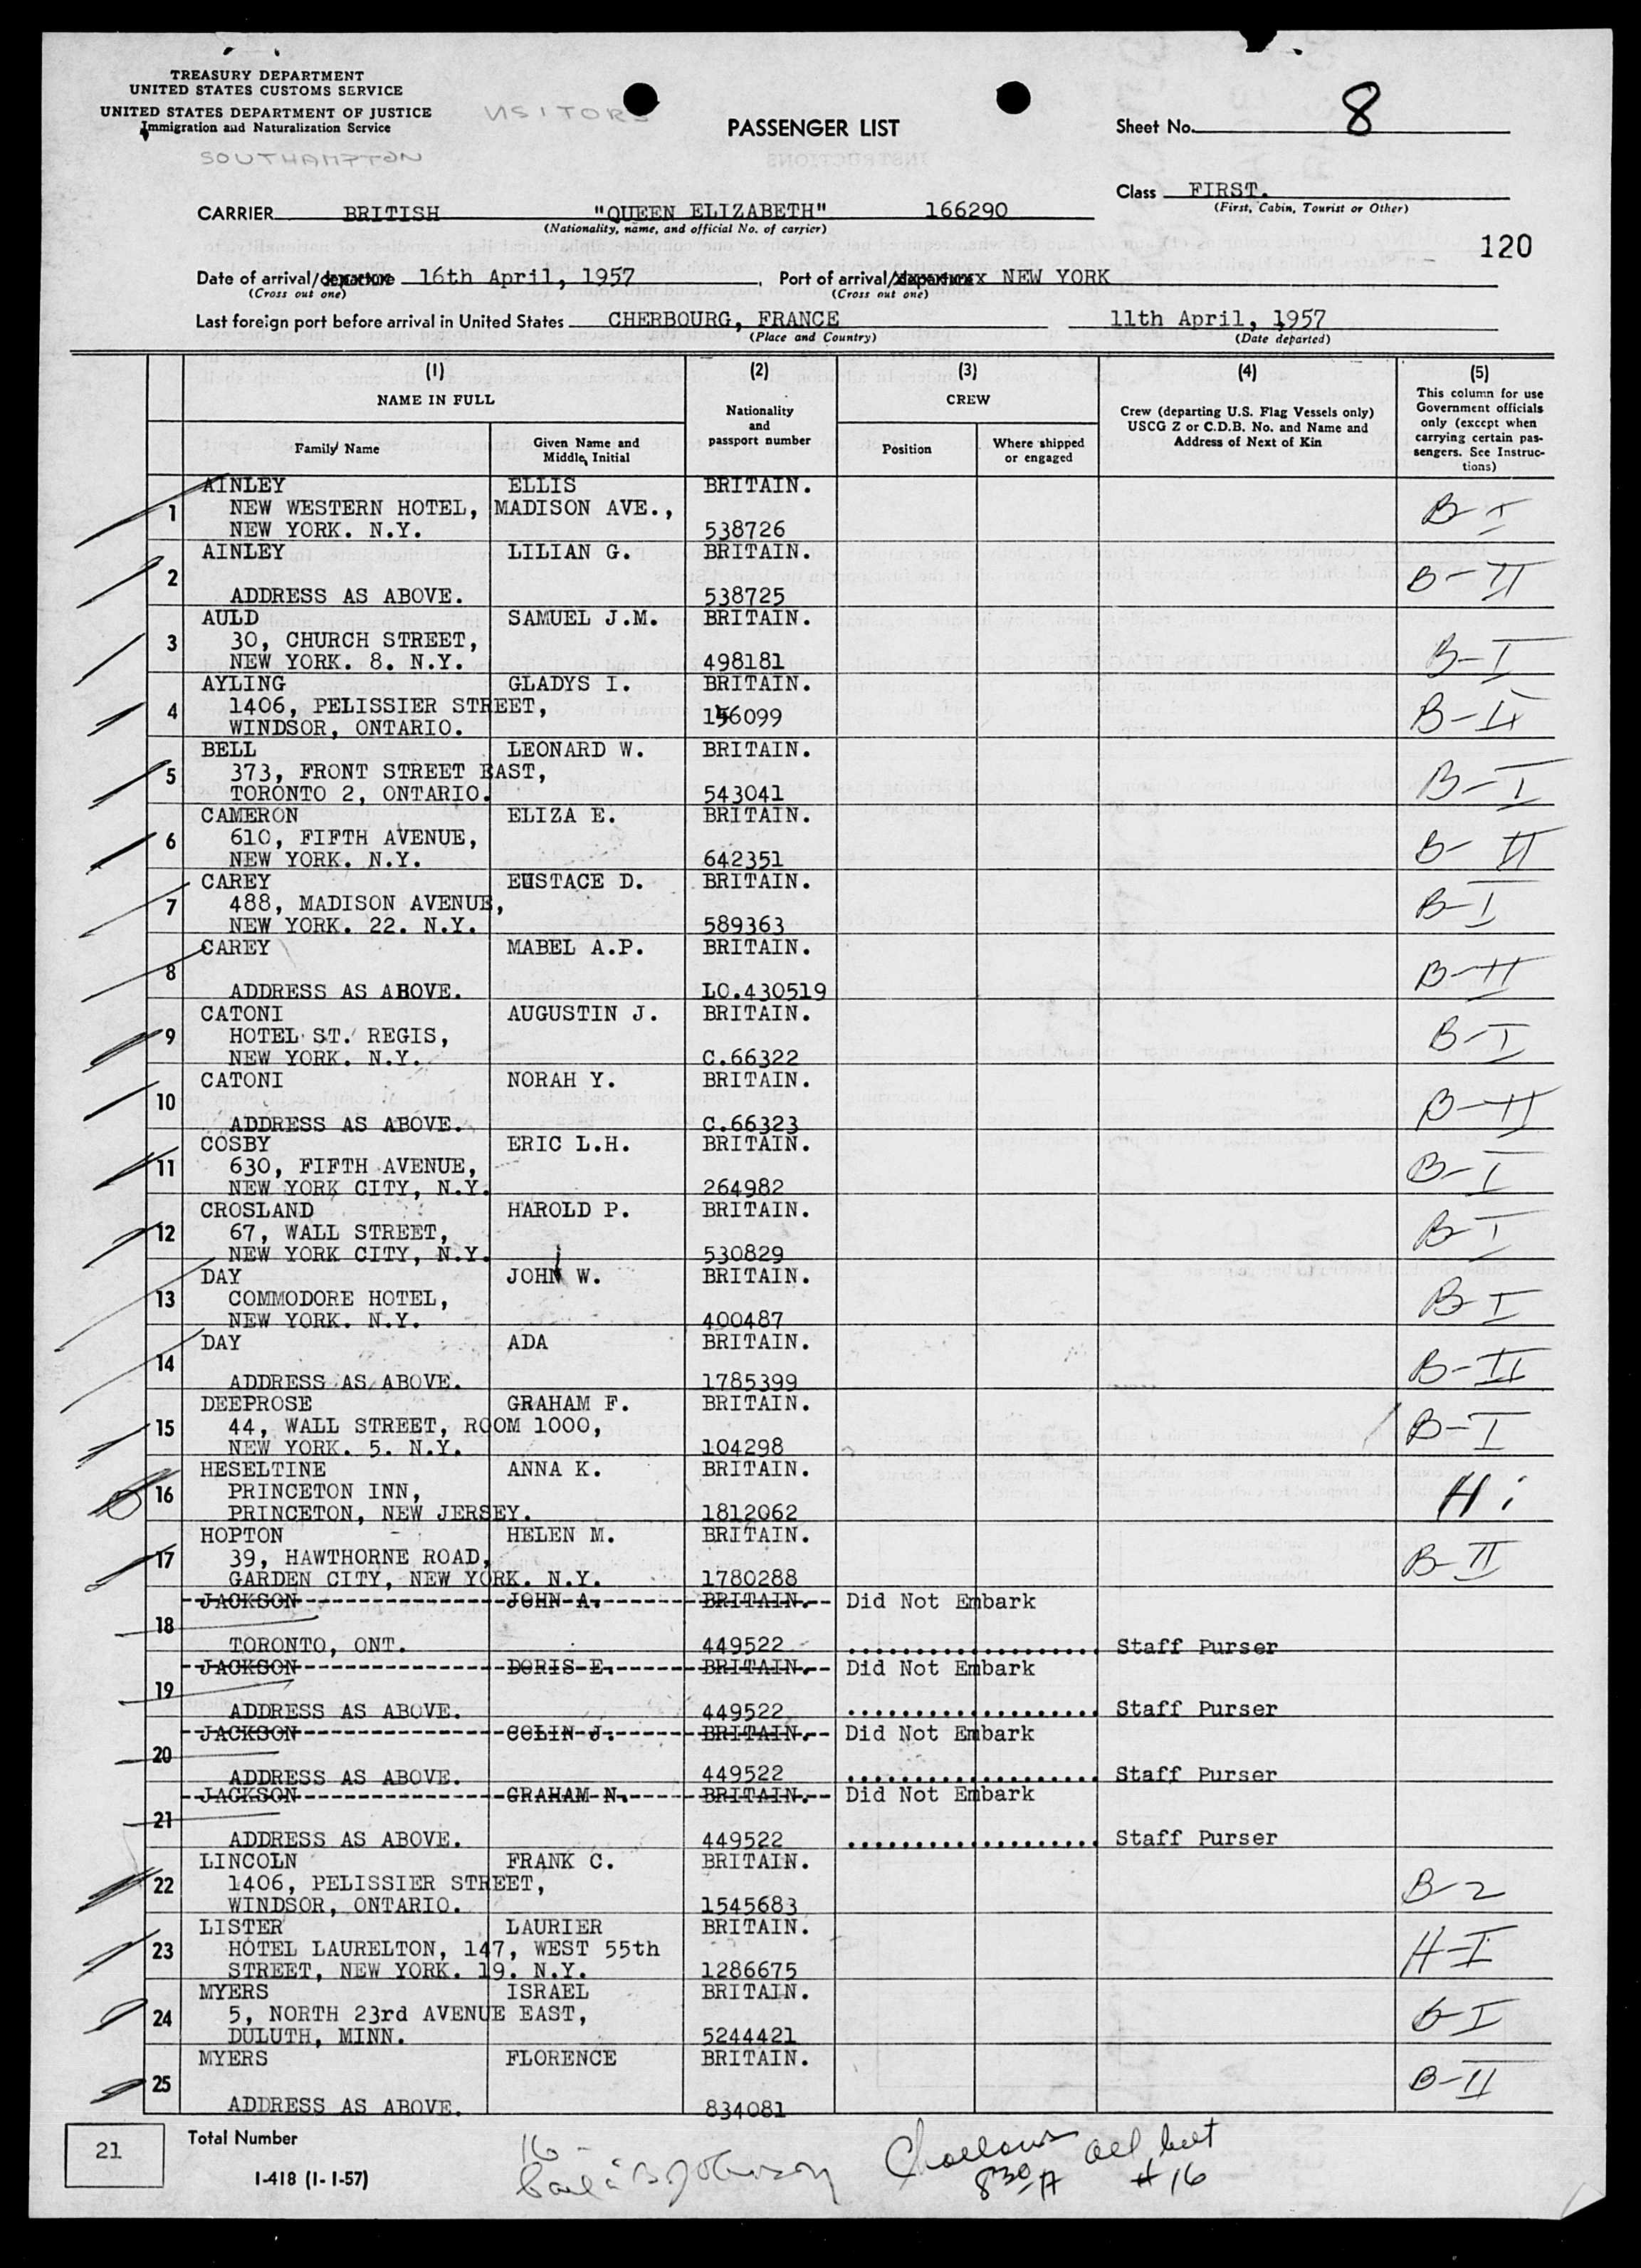 TREASURY DEPARTMENT
UNITED STATES CUSTOMS SERVICE
UNITED STATES DEPARTMENT OF JUSTICE
Immigration and Naturalization Service
VISITORS
SOUTHAMPTON
PASSENGER LIST
Sheet No. 8
Class FIRST.
(First, Cabin, Tourist or Other)
CARRIER BRITISH "QUEEN ELIZABETH" 166290
(Nationality, name, and official No. of carrier)
120
Date of arrival/departure 16th April, 1957. Port of arrival/departure NEW YORK
(Cross out one) (Cross out one)
Last foreign port before arrival in United States CHERBOURG, FRANCE 11th April, 1957
(Place and Country) (Date departed)
(1) (2) (3) (4) (5)
NAME IN FULL
Nationality and passport number
CREW
Crew (departing U.S. Flag Vessels only) USCG Z or C.D.B. No. and Name and Address of Next of Kin
This column for use Government officials only (except when carrying certain passengers. See Instructions)
Family Name Given Name and Middle Initial Position Where shipped or engaged
1 AINLEY ELLIS BRITAIN.
NEW WESTERN HOTEL, MADISON AVE., B-I
NEW YORK. N.Y. 538726
2 AINLEY LILIAN G. BRITAIN. B-II
ADDRESS AS ABOVE. 538725
3 AULD SAMUEL J.M. BRITAIN.
30, CHURCH STREET, B-I
NEW YORK. 8. N.Y. 498181
4 AYLING GLADYS I. BRITAIN.
1406, PELISSIER STREET, 156099 B-II
WINDSOR, ONTARIO.
5 BELL LEONARD W. BRITAIN.
373, FRONT STREET EAST, B-I
TORONTO 2, ONTARIO. 543041
6 CAMERON ELIZA E. BRITAIN.
610, FIFTH AVENUE, B-II
NEW YORK. N.Y. 642351
7 CAREY EUSTACE D. BRITAIN.
488, MADISON AVENUE, B-I
NEW YORK. 22. N.Y. 589363
8 CAREY MABEL A.P. BRITAIN. B-II
ADDRESS AS ABOVE. LO.430519
9 CATONI AUGUSTIN J. BRITAIN.
HOTEL ST. REGIS, B-I
NEW YORK. N.Y. C.66322
10 CATONI NORAH Y. BRITAIN. B-II
ADDRESS AS ABOVE. C.66323
11 COSBY ERIC L.H. BRITAIN.
630, FIFTH AVENUE, B-I
NEW YORK CITY, N.Y. 264982
12 CROSLAND HAROLD P. BRITAIN.
67, WALL STREET, B-I
NEW YORK CITY, N.Y. 530829
13 DAY JOHN W. BRITAIN.
COMMODORE HOTEL, B-I
NEW YORK. N.Y. 400487
14 DAY ADA BRITAIN. B-II
ADDRESS AS ABOVE. 1785399
15 DEEPROSE GRAHAM F. BRITAIN.
44, WALL STREET, ROOM 1000, B-I
NEW YORK. 5. N.Y. 104298
16 HESELTINE ANNA K. BRITAIN.
PRINCETON INN, H i
PRINCETON, NEW JERSEY. 1812062
17 HOPTON HELEN M. BRITAIN.
39, HAWTHORNE ROAD, B-II
GARDEN CITY, NEW YORK. N.Y. 1780288
18 JACKSON JOHN A. BRITAIN. Did Not Embark
TORONTO, ONT. 449522 .................... Staff Purser
19 JACKSON DORIS E. BRITAIN. Did Not Embark
ADDRESS AS ABOVE. 449522 .................... Staff Purser
20 JACKSON COLIN J. BRITAIN. Did Not Embark
ADDRESS AS ABOVE. 449522 .................... Staff Purser
21 JACKSON GRAHAM N. BRITAIN. Did Not Embark
ADDRESS AS ABOVE. 449522 .................... Staff Purser
22 LINCOLN FRANK C. BRITAIN.
1406, PELISSIER STREET, B-2
WINDSOR, ONTARIO. 1545683
23 LISTER LAURIER BRITAIN.
HOTEL LAURELTON, 147, WEST 55th H-I
STREET, NEW YORK. 19. N.Y. 1286675
24 MYERS ISRAEL BRITAIN.
5, NORTH 23rd AVENUE EAST, B-I
DULUTH, MINN. 5244421
25 MYERS FLORENCE BRITAIN. B-II
ADDRESS AS ABOVE. 834081
21 Total Number
I-418 (1-1-57)
16 -
Johnson
all but
830 A # 16